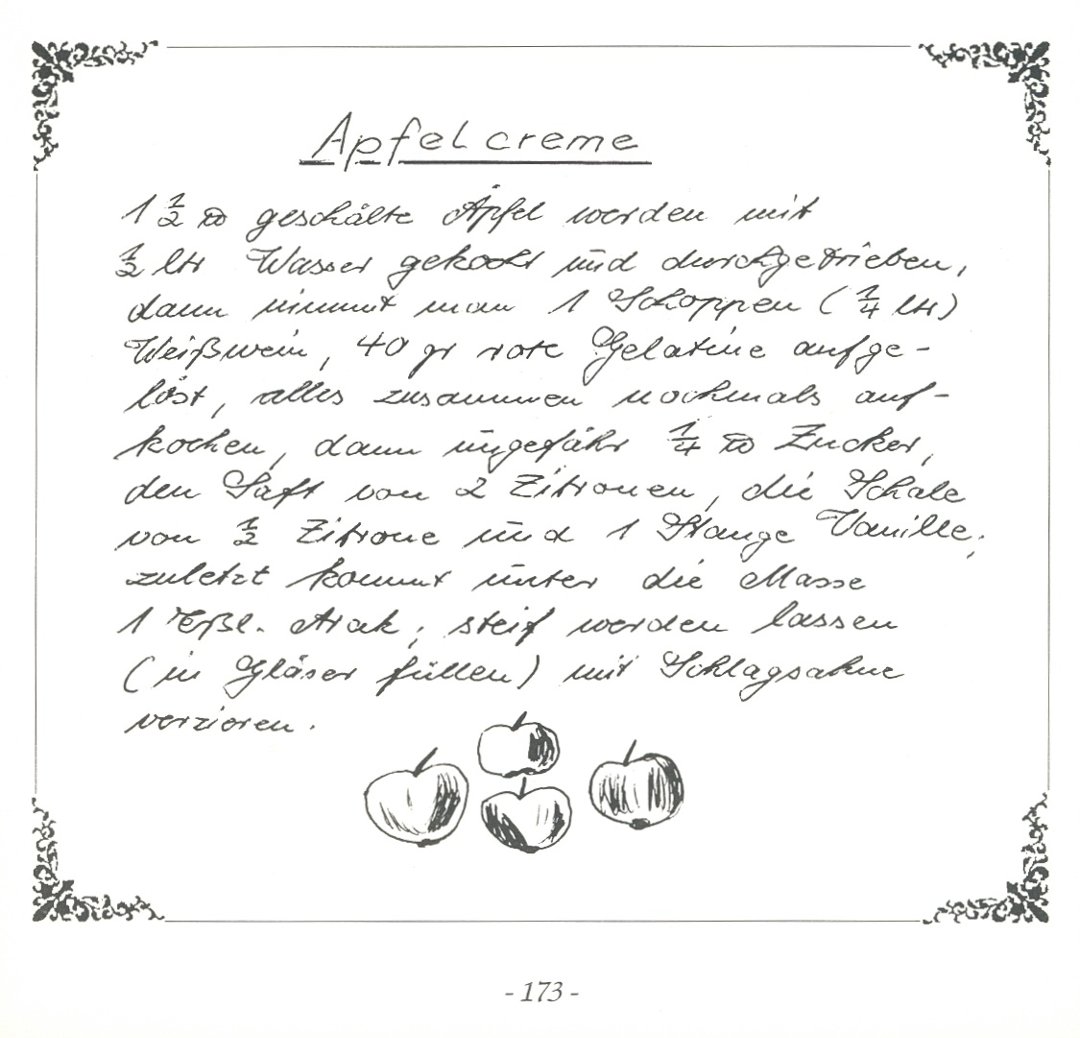 Apfelcreme
1 1/2 ℔ geschälte Äpfel werden mit
1/2 ltr Wasser gekocht und durchgetrieben,
dann nimmt man 1 Schoppen (1/4 ltr)
Weißwein, 40 gr rote Gelatine aufge-
löst, alles zusammen nochmals auf-
kochen, dann ungefähr 1/4 ℔ Zucker,
den Saft von 2 Zitronen, die Schale
von 1/2 Zitrone und 1 Stange Vanille;
zuletzt kommt unter die Masse
1 Eßl. Arak; steif werden lassen
(in Gläser füllen) mit Schlagsahne
verzieren.
- 173 -